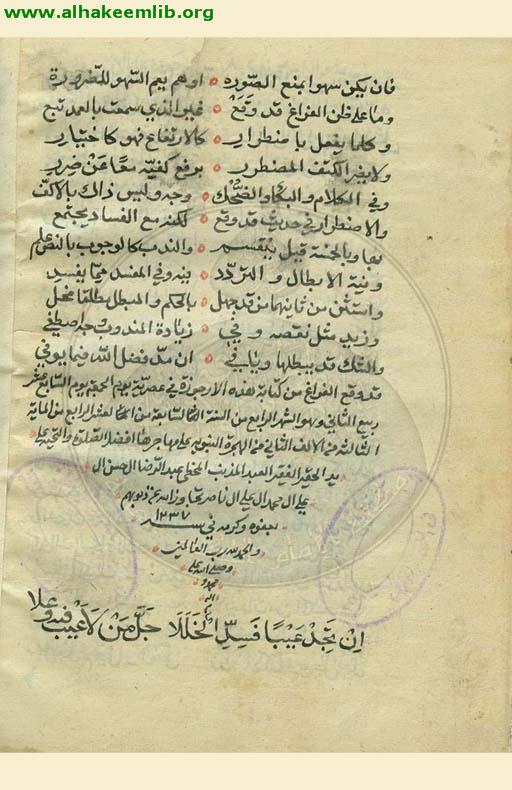 www.alhakeemlib.org
فان يكن سهوا بمنع الصوره او هم يعم السهو للضرورة
وما على ظن الفراغ قد وقع غير الذي سمعت بالعمد تبع
وكلما يفعل باضطرار كالارتفاع فهو كاختيار
ولا يضر الكتف المضطر برفع كفيه معا عن ضرر
وفي الكلام والبكا والضحك وجه وليس ذاك بالاكف
والاضطرار في حديث قد وقع لكنه مع الفساد يجتمع
بها وبالخمسة قيل ينقسم والندب كالوجوب بالنص علم
ونية الابطال و التردد بنيه وفي المفسد مما يفسد
واستثن من ثانيهما من قد جهل بالحكم والمبطل مطلقا مخل
وزيد مثل نقصه وفي زيادة المندوب
والشك قد يبطلها وياتي ان مد فضل الله فيما يوتي
قد وقع الفراغ من كتابة هذه الارجوزة في عصرية يوم الجمعة يوم السابع عشر
ربيع الثاني وهو الشهر الرابع من السنة السابعة من العشر الرابع من الماية
الثالثة من الالف الثاني من الهجرة النبوية على مهاجرها افضل الصلوة والتحية على
يد الحقير الفقير العبد المذنب الخطي عبد الرضا ال حسن ال
علي ال محمد ال علي ال ناصر تجاوز الله عن ذنوبهم
بعفوه وكرمه في سنة ١٢٣٧
والحمد لله رب العالمين
وصلى الله على
محمد و
اله
اِنْ تَجِدْ عَيْبًا فَسِدِّ الْخَلَلَا جَلَّ مَنْ لَا عَيْبَ فِيهِ وَعَلا